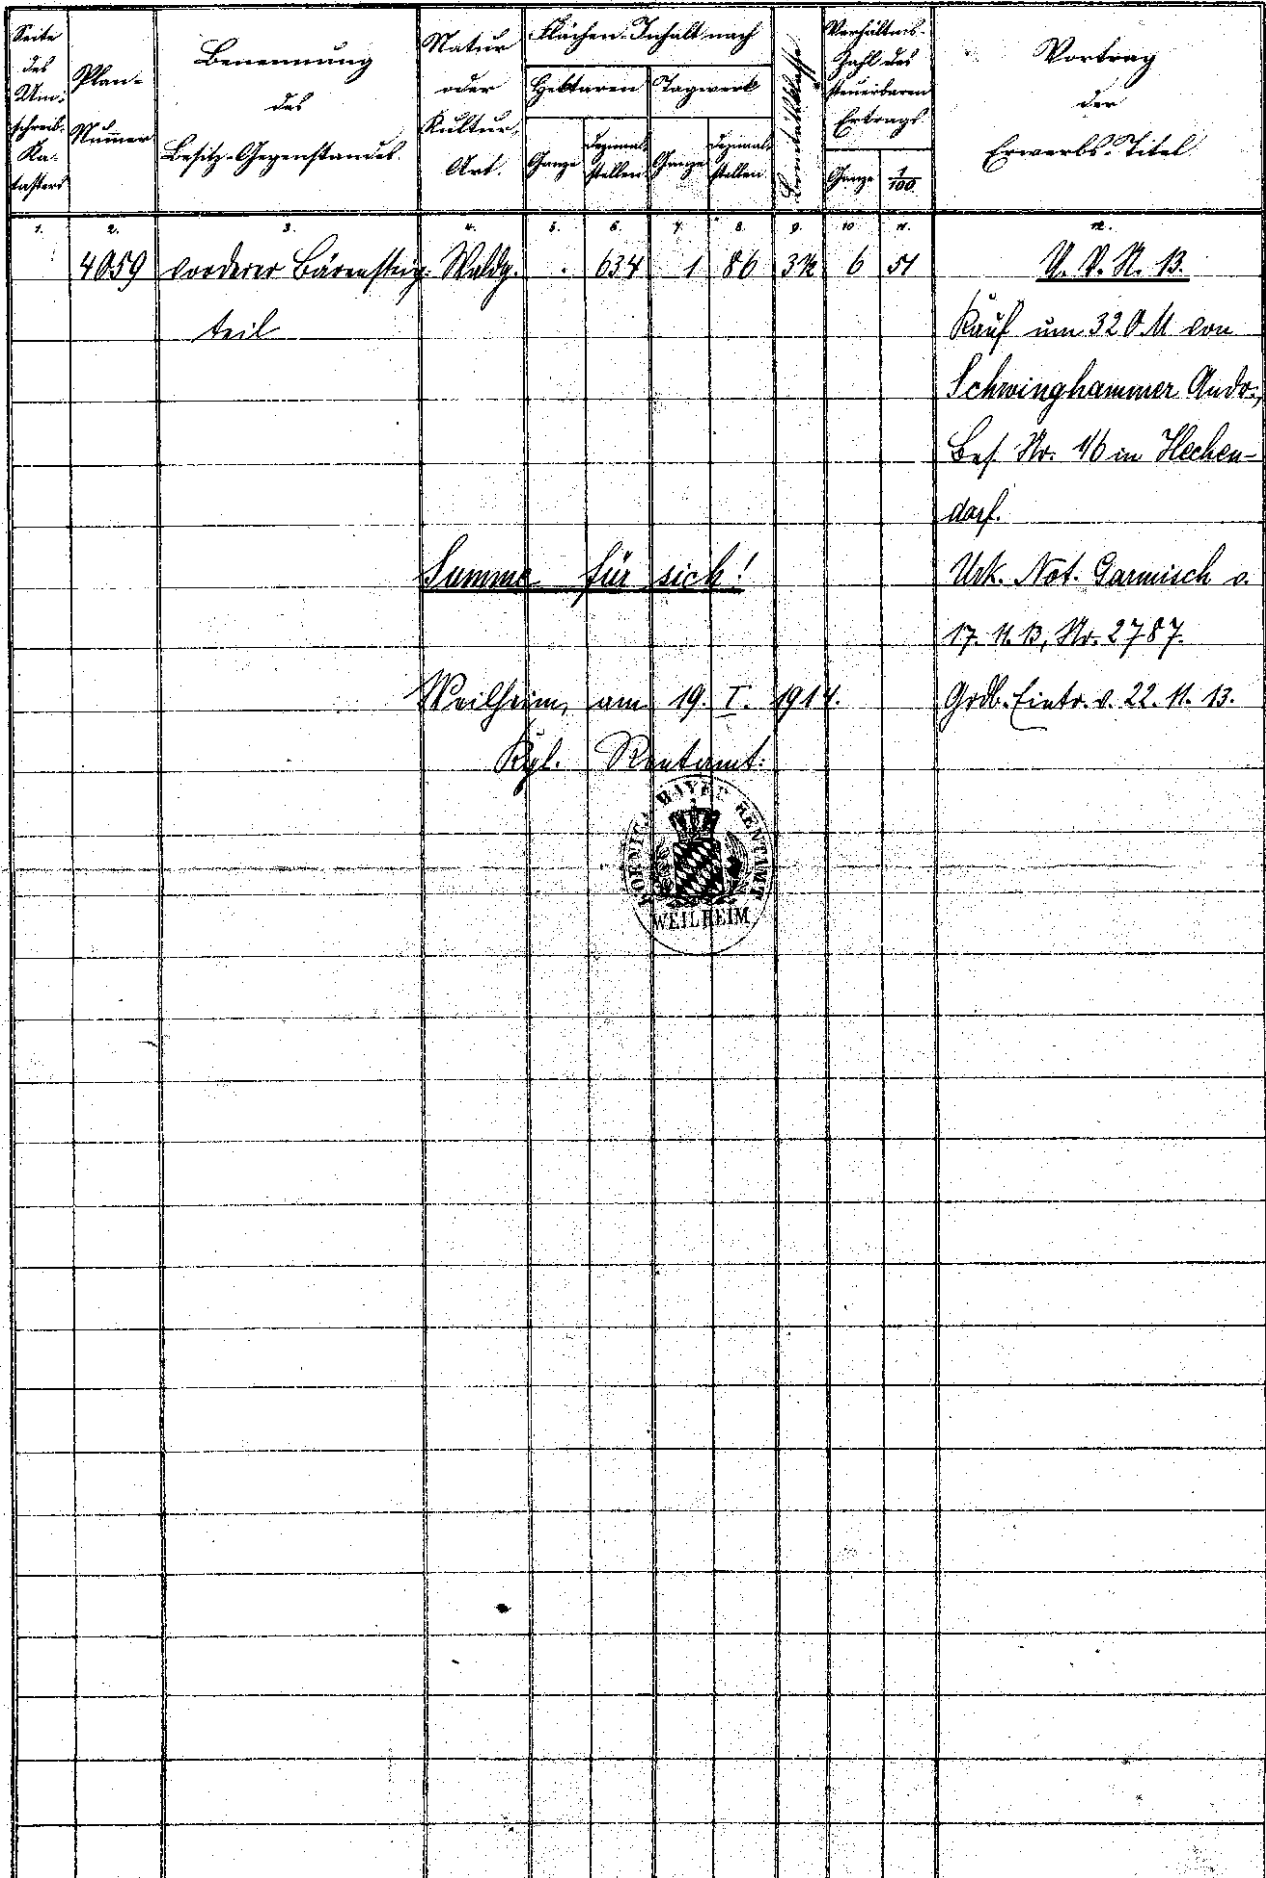 Seite des Um-schreib-Ka-tasters
Plan-Nummer
Benennung des Besitz-Gegenstandes.
Natur oder Kultur-Art.
Flächen-Inhalt nach
Hektaren
Tagwerk
Ganze
Dezimal-stellen
Ganze
Dezimal-stellen
Bonitätsklasse
Verhältnis-Zahl des steuerbaren Ertrags.
Ganze
1/100.
Vortrag der Erwerbs-Titel
1. 2. 3. 4. 5. 6. 7. 8. 9. 10 11. 12.
4059 vorderer Bärensteig- Waldg. . 634 1 86 3½ 6 51 U. V. N. 13.
teil Kauf um 320 M von
Schwinghammer Andr.,
Bes. Nr. 16 in Hechen-
dorf.
Summe für sich! Urk. Not. Garmisch v.
17. 11. 13, Nr. 2787.
Weilheim, am 19. I. 1914. Grdb. Eintr. v. 22. 11. 13.
Kgl. Rentamt:
KOENIGL. BAYER. RENTAMT
WEILHEIM